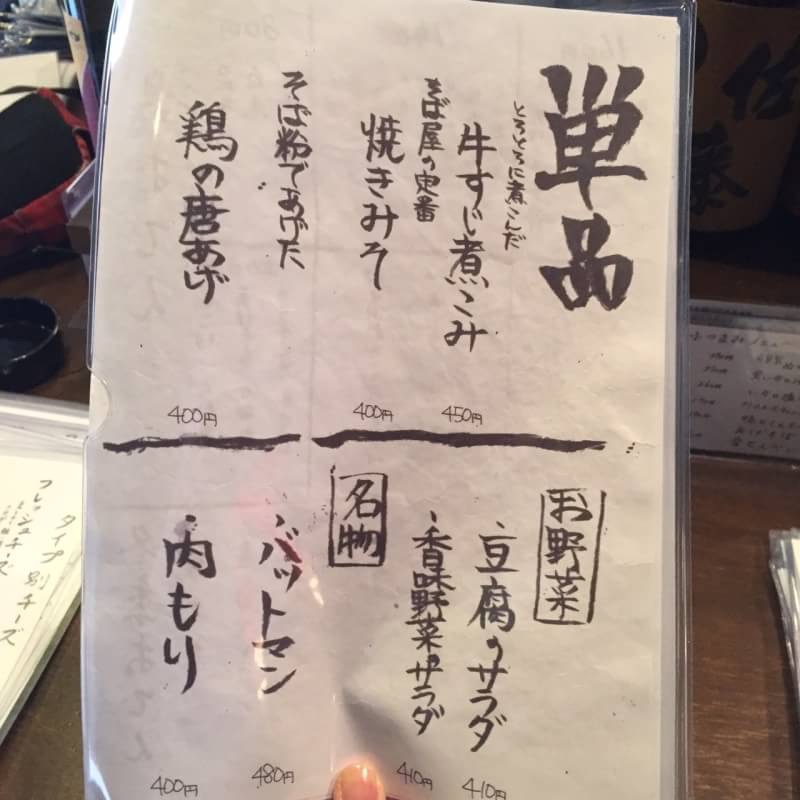 単品
とろとろに煮こんだ
牛すじ煮こみ
450円
そば屋の定番
焼きみそ
400円
そば粉であげた
鶏の唐あげ
400円
お野菜
・豆腐のサラダ
410円
・香味野菜のサラダ
410円
名物
・バットマン
480円
・肉もり
400円
タイプ別チーズ
フレッシュチーズ
佐藤